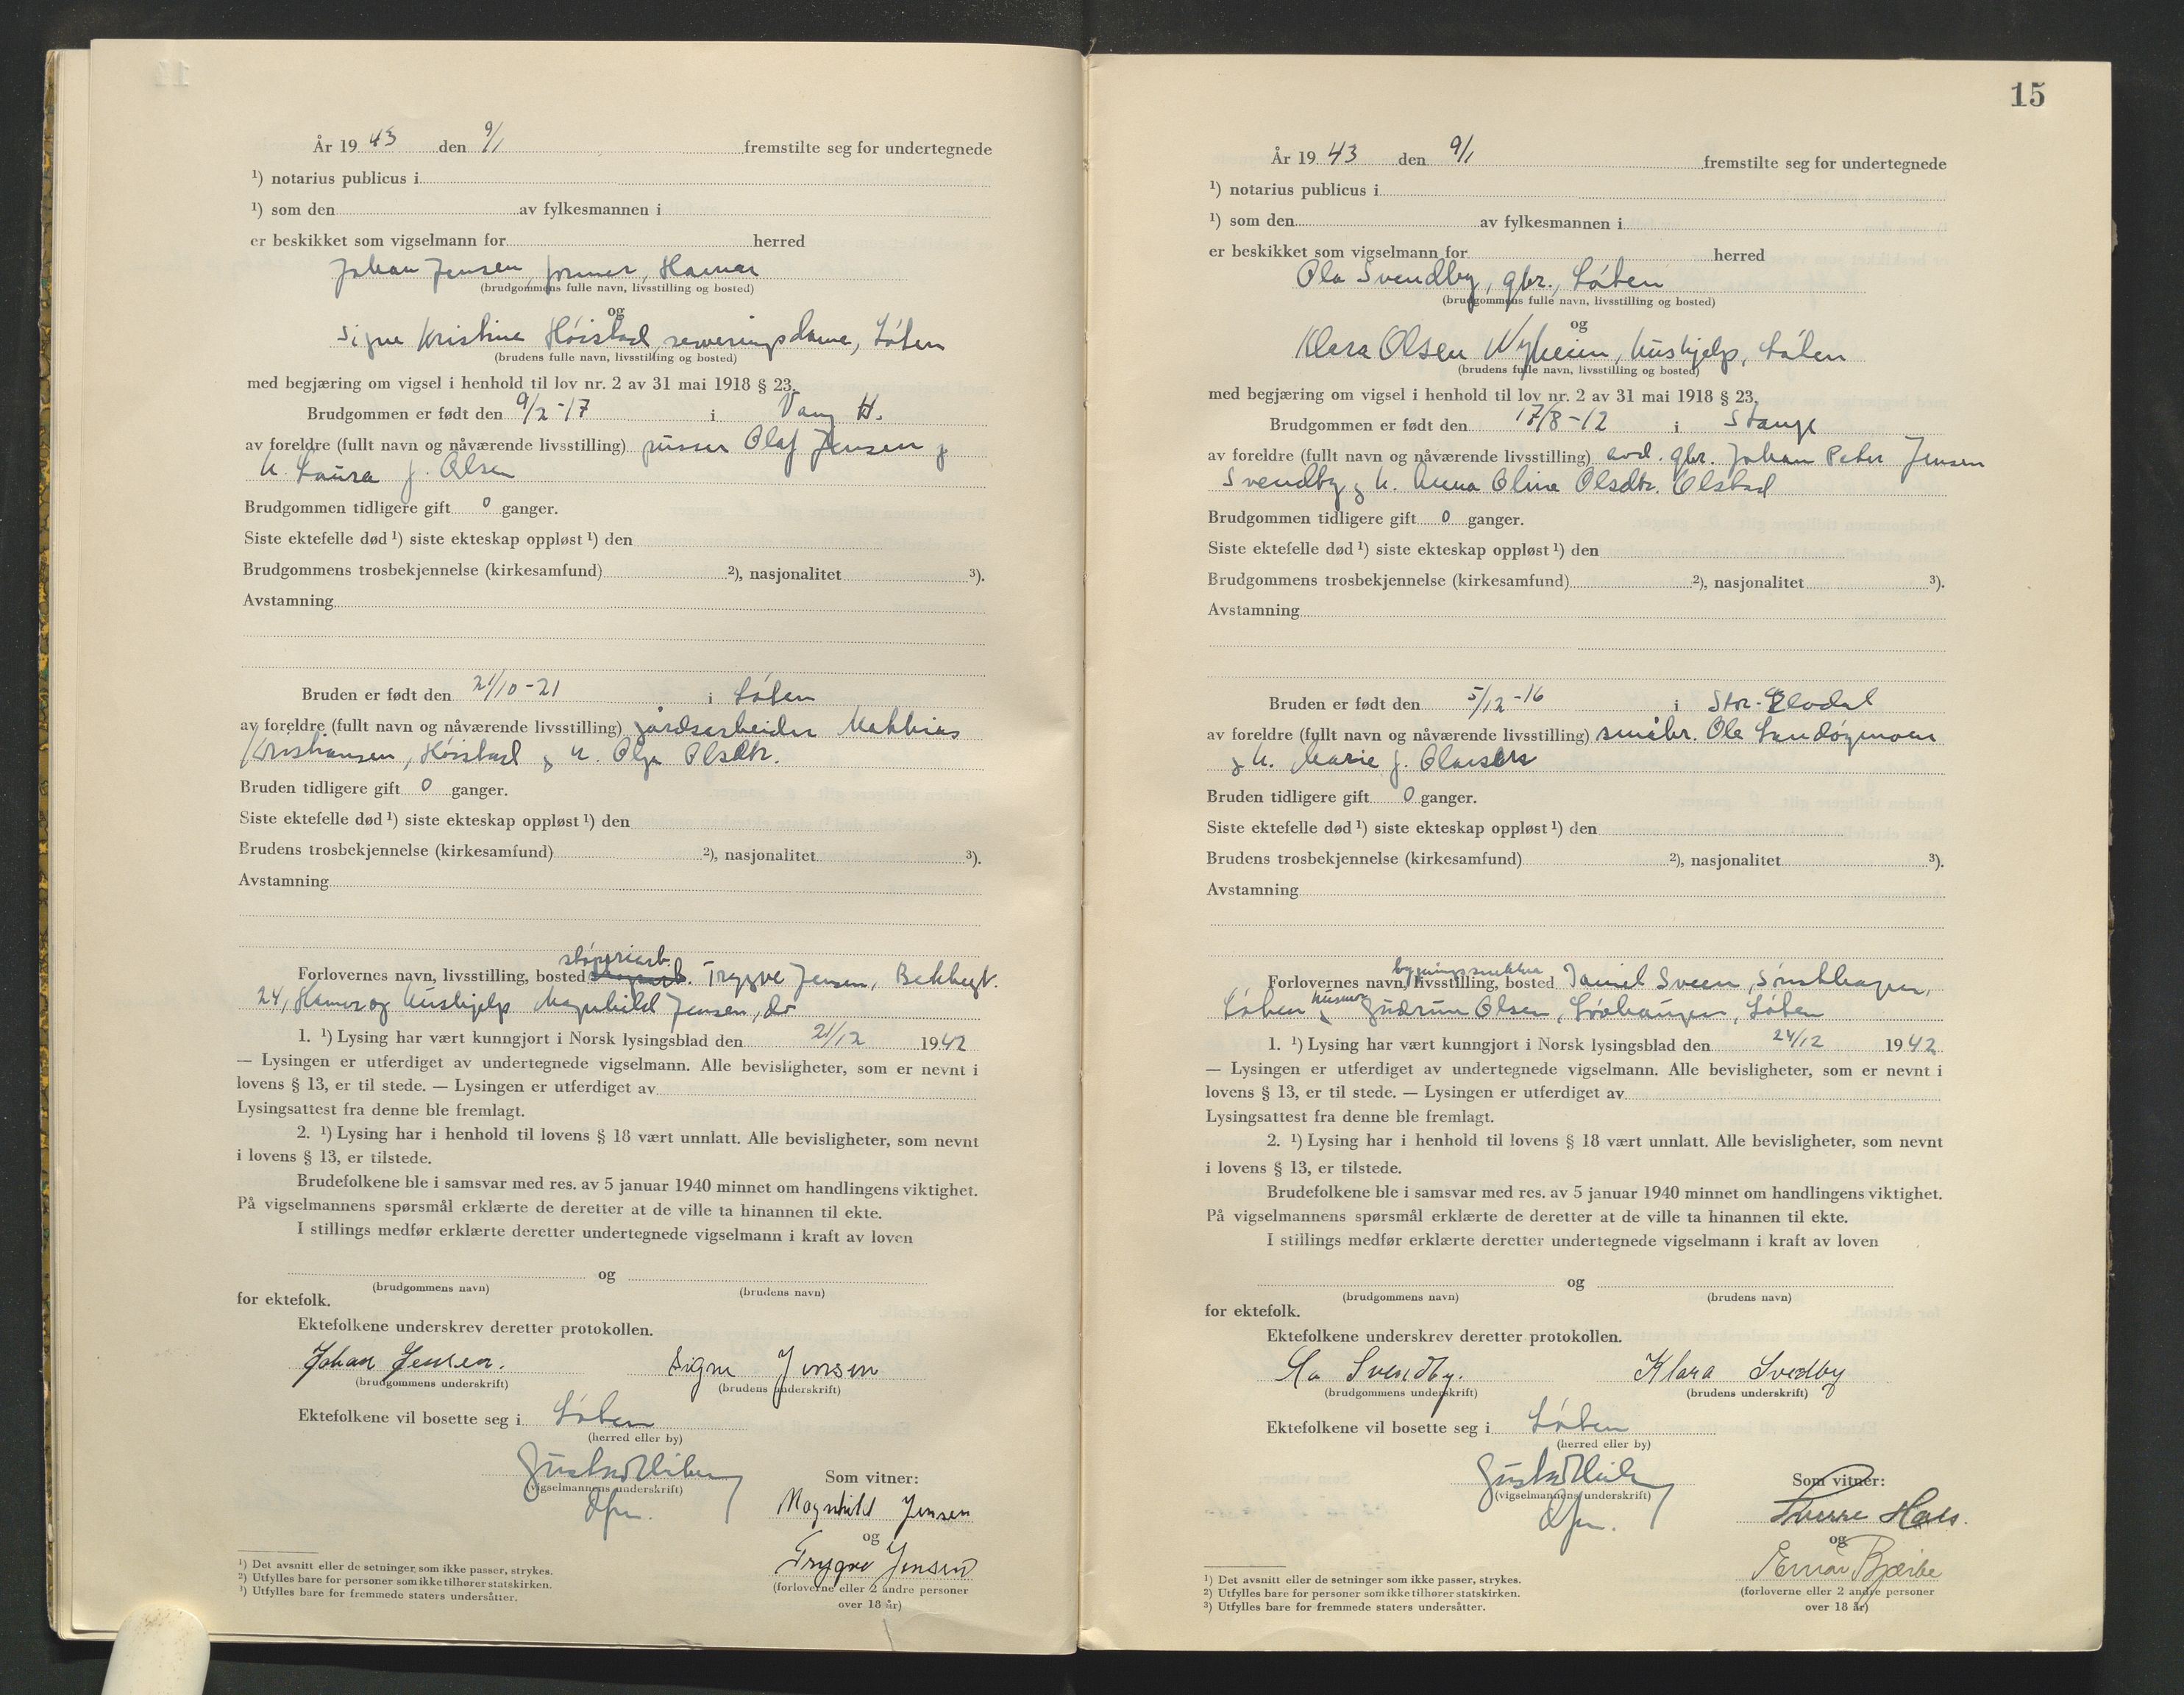 År 1943 den 9/1 fremstilte seg for undertegnede
¹) notarius publicus i
¹) som den av fylkesmannen i
er beskikket som vigselmann for herred
Johan Jensen, former, Hamar
(brudgommens fulle navn, livsstilling og bosted)
og
Signe Kristine Höistad, serveringsdame, Löten
(brudens fulle navn, livsstilling og bosted)
med begjæring om vigsel i henhold til lov nr. 2 av 31 mai 1918 § 23.
Brudgommen er født den 9/2-17 i Vang H.
av foreldre (fullt navn og nåværende livsstilling) pusser Olaf Jensen og
h. Laura f. Olsen
Brudgommen tidligere gift 0 ganger.
Siste ektefelle død ¹) siste ekteskap oppløst ¹) den
Brudgommens trosbekjennelse (kirkesamfund) ²), nasjonalitet ³).
Avstamning
Bruden er født den 21/10-21 i Löten
av foreldre (fullt navn og nåværende livsstilling) gårdsarbeider Mathias
Kristiansen, Höistad og h. Olga Olsdtr.
Bruden tidligere gift 0 ganger.
Siste ektefelle død ¹) siste ekteskap oppløst ¹) den
Brudens trosbekjennelse (kirkesamfund) ²), nasjonalitet ³).
Avstamning
støperiarb.
Forlovernes navn, livsstilling, bosted Trygve Jensen, Bekkegt.
24, Hamar og hushjelp Magnhild Jensen, do
1. ¹) Lysing har vært kunngjort i Norsk lysingsblad den 21/12 1942
— Lysingen er utferdiget av undertegnede vigselmann. Alle bevisligheter, som er nevnt i
lovens § 13, er til stede. — Lysingen er utferdiget av
Lysingsattest fra denne ble fremlagt.
2. ¹) Lysing har i henhold til lovens § 18 vært unnlatt. Alle bevisligheter, som nevnt
i lovens § 13, er tilstede.
Brudefolkene ble i samsvar med res. av 5 januar 1940 minnet om handlingens viktighet.
På vigselmannens spørsmål erklærte de deretter at de ville ta hinannen til ekte.
I stillings medfør erklærte deretter undertegnede vigselmann i kraft av loven
og
(brudgommens navn) (brudens navn)
for ektefolk.
Ektefolkene underskrev deretter protokollen.
Johan Jensen. Signe Jensen
(brudgommens underskrift) (brudens underskrift)
Ektefolkene vil bosette seg i Löten
(herred eller by)
(vigselmannens underskrift)
Som vitner:
Magnhild Jensen
og
Trygve Jensen
(forloverne eller 2 andre personer
over 18 år)
¹) Det avsnitt eller de setninger som ikke passer, strykes.
²) Utfylles bare for personer som ikke tilhører statskirken.
³) Utfylles bare for fremmede staters undersåtter.
15
År 1943 den 9/1 fremstilte seg for undertegnede
¹) notarius publicus i
¹) som den av fylkesmannen i
er beskikket som vigselmann for herred
Ola Svendby, gbr., Löten
(brudgommens fulle navn, livsstilling og bosted)
og
Klara Olsen Nyheim, hushjelp, Löten
(brudens fulle navn, livsstilling og bosted)
med begjæring om vigsel i henhold til lov nr. 2 av 31 mai 1918 § 23.
Brudgommen er født den 17/8-12 i Stange
av foreldre (fullt navn og nåværende livsstilling) avd. gbr. Johan Peter Jensen
Svendby og h. Anna Oline Olsdtr. Olstad
Brudgommen tidligere gift 0 ganger.
Siste ektefelle død ¹) siste ekteskap oppløst ¹) den
Brudgommens trosbekjennelse (kirkesamfund) ²), nasjonalitet ³).
Avstamning
Bruden er født den 5/12-16 i Stor-Elvdal
av foreldre (fullt navn og nåværende livsstilling) småbr. Ole
og h. Marie f.
Bruden tidligere gift 0 ganger.
Siste ektefelle død ¹) siste ekteskap oppløst ¹) den
Brudens trosbekjennelse (kirkesamfund) ²), nasjonalitet ³).
Avstamning
bygningssnekker
Forlovernes navn, livsstilling, bosted Daniel Sveen,
Löten og husmor Gudrun Olsen, Löten
1. ¹) Lysing har vært kunngjort i Norsk lysingsblad den 24/12 1942
— Lysingen er utferdiget av undertegnede vigselmann. Alle bevisligheter, som er nevnt i
lovens § 13, er til stede. — Lysingen er utferdiget av
Lysingsattest fra denne ble fremlagt.
2. ¹) Lysing har i henhold til lovens § 18 vært unnlatt. Alle bevisligheter, som nevnt
i lovens § 13, er tilstede.
Brudefolkene ble i samsvar med res. av 5 januar 1940 minnet om handlingens viktighet.
På vigselmannens spørsmål erklærte de deretter at de ville ta hinannen til ekte.
I stillings medfør erklærte deretter undertegnede vigselmann i kraft av loven
og
(brudgommens navn) (brudens navn)
for ektefolk.
Ektefolkene underskrev deretter protokollen.
Ola Svendby. Klara Svedby
(brudgommens underskrift) (brudens underskrift)
Ektefolkene vil bosette seg i Löten
(herred eller by)
(vigselmannens underskrift)
Som vitner:
Sverre Hals.
og
Einar Bjerke
(forloverne eller 2 andre personer
over 18 år)
¹) Det avsnitt eller de setninger som ikke passer, strykes.
²) Utfylles bare for personer som ikke tilhører statskirken.
³) Utfylles bare for fremmede staters undersåtter.